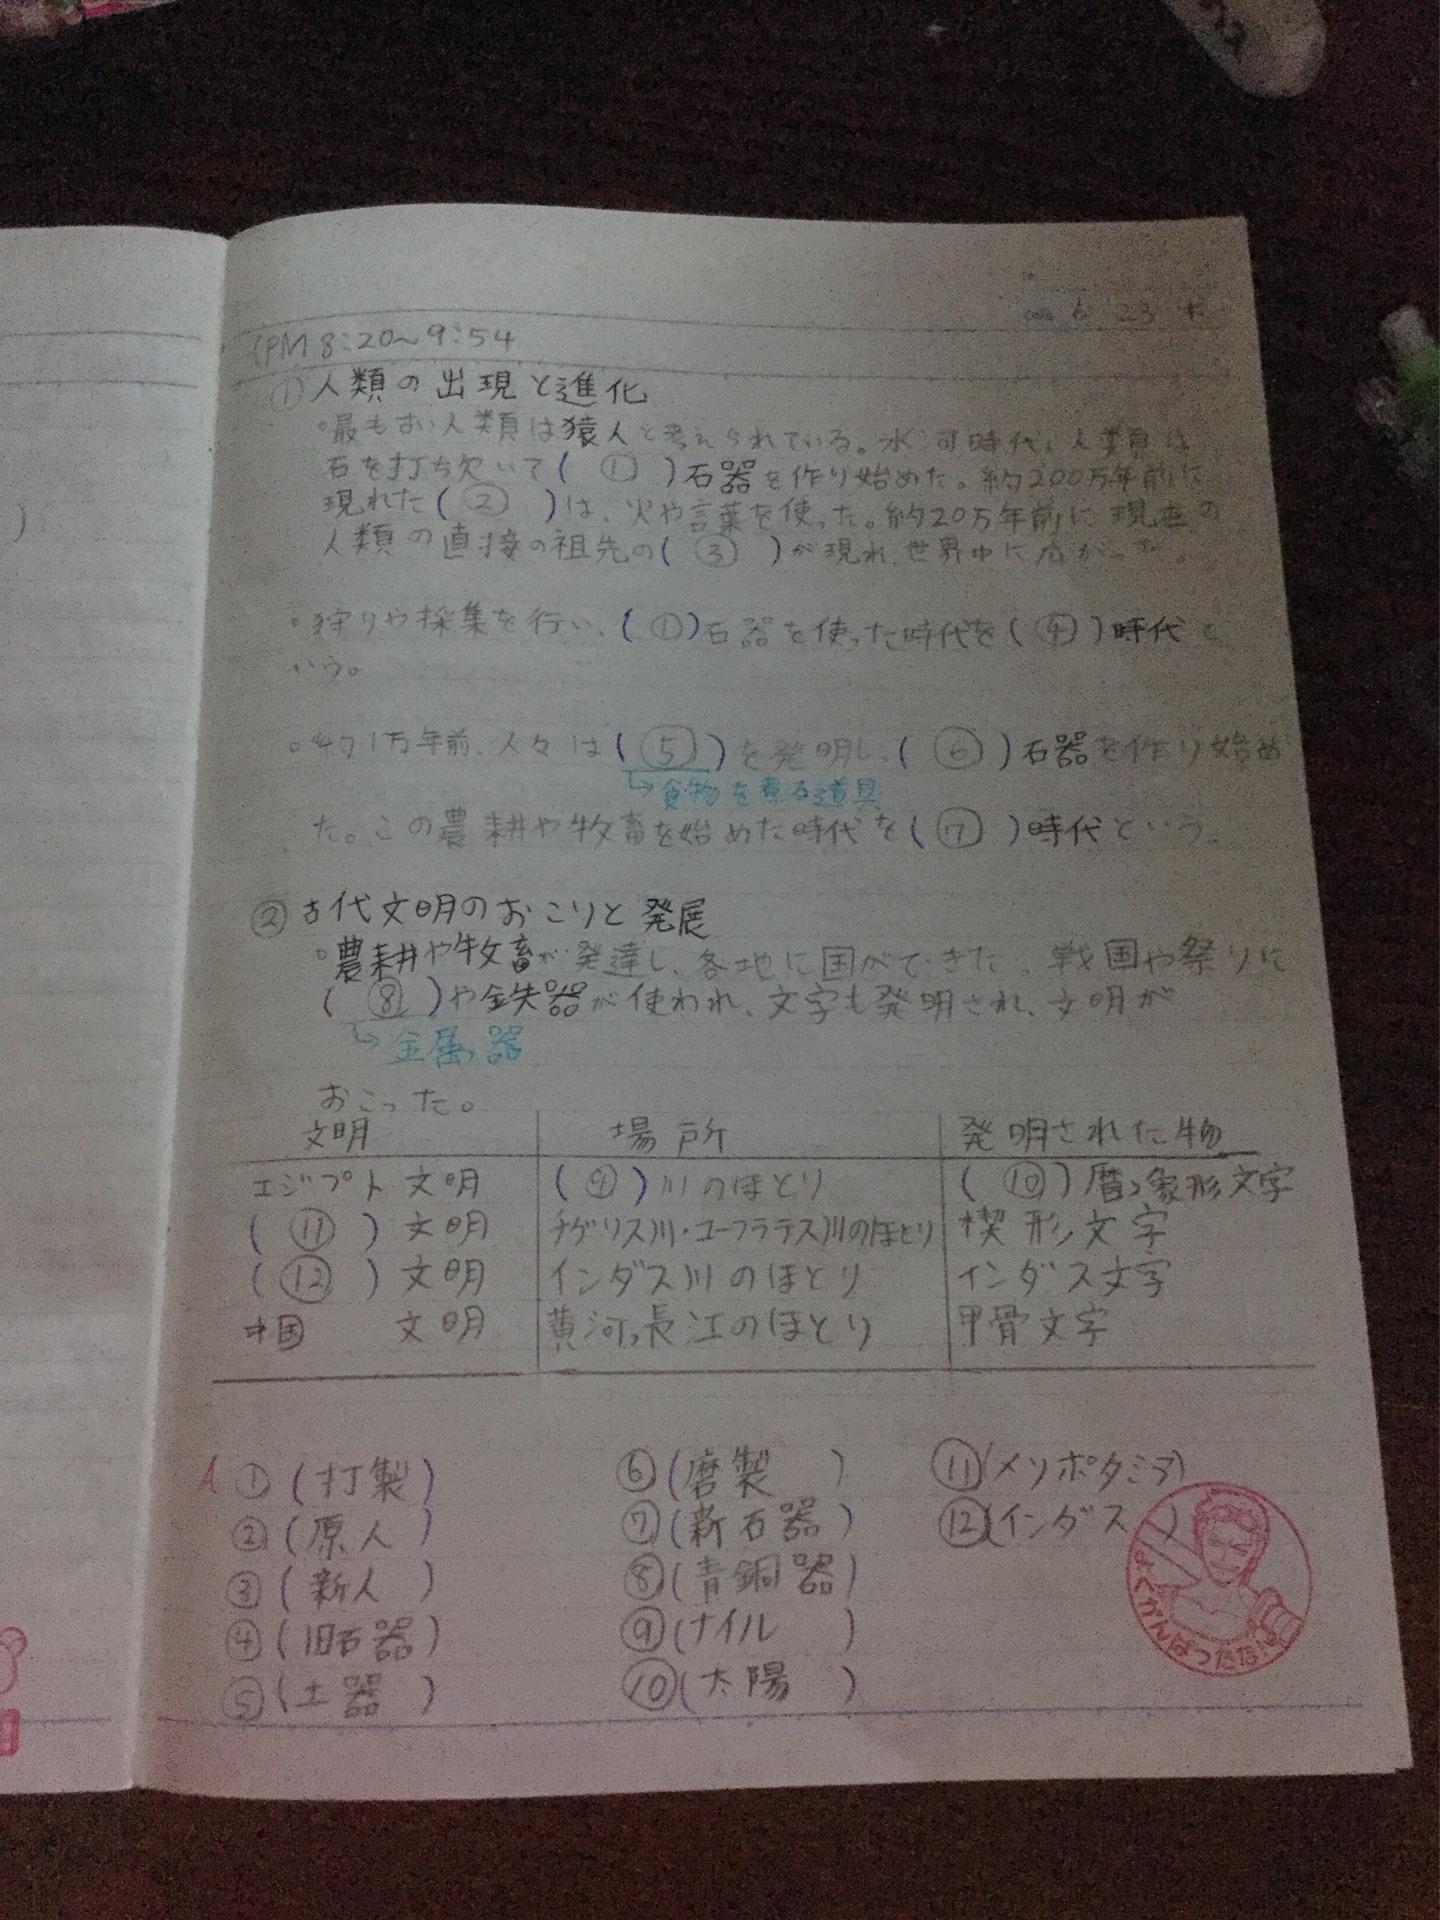 6 23 木
PM 8:20～9:54
① 人類の出現と進化
・最も古い人類は猿人と考えられている。氷河時代、人類は、
石を打ち欠いて( ① )石器を作り始めた。約200万年前に
現れた( ② )は、火や言葉を使った。約20万年前に現在の
人類の直接の祖先の( ③ )が現れ、世界中に広がった。
・狩りや採集を行い、( ① )石器を使った時代を( ④ )時代と
いう。
・約1万年前、人々は( ⑤ )を発明し、( ⑥ )石器を作り始め
↳食物を煮る道具
た。この農耕や牧畜を始めた時代を( ⑦ )時代という。
② 古代文明のおこりと発展
・農耕や牧畜が発達し、各地に国ができた。戦国や祭りに
( ⑧ )や鉄器が使われ、文字も発明され、文明が
↳金属器
おこった。
文明 場所 発明された物
エジプト 文明 ( ⑨ )川のほとり ( ⑩ )暦、象形文字
( ⑪ ) 文明 チグリス川・ユーフラテス川のほとり 楔形文字
( ⑫ ) 文明 インダス川のほとり インダス文字
中国 文明 黄河、長江のほとり 甲骨文字
A ① (打製) ⑥ (磨製 ) ⑪ (メソポタミア)
② (原人 ) ⑦ (新石器 ) ⑫ (インダス )
③ (新人 ) ⑧ (青銅器)
④ (旧石器) ⑨ (ナイル )
⑤ (土器 ) ⑩ (太陽 )
よくがんばったな!